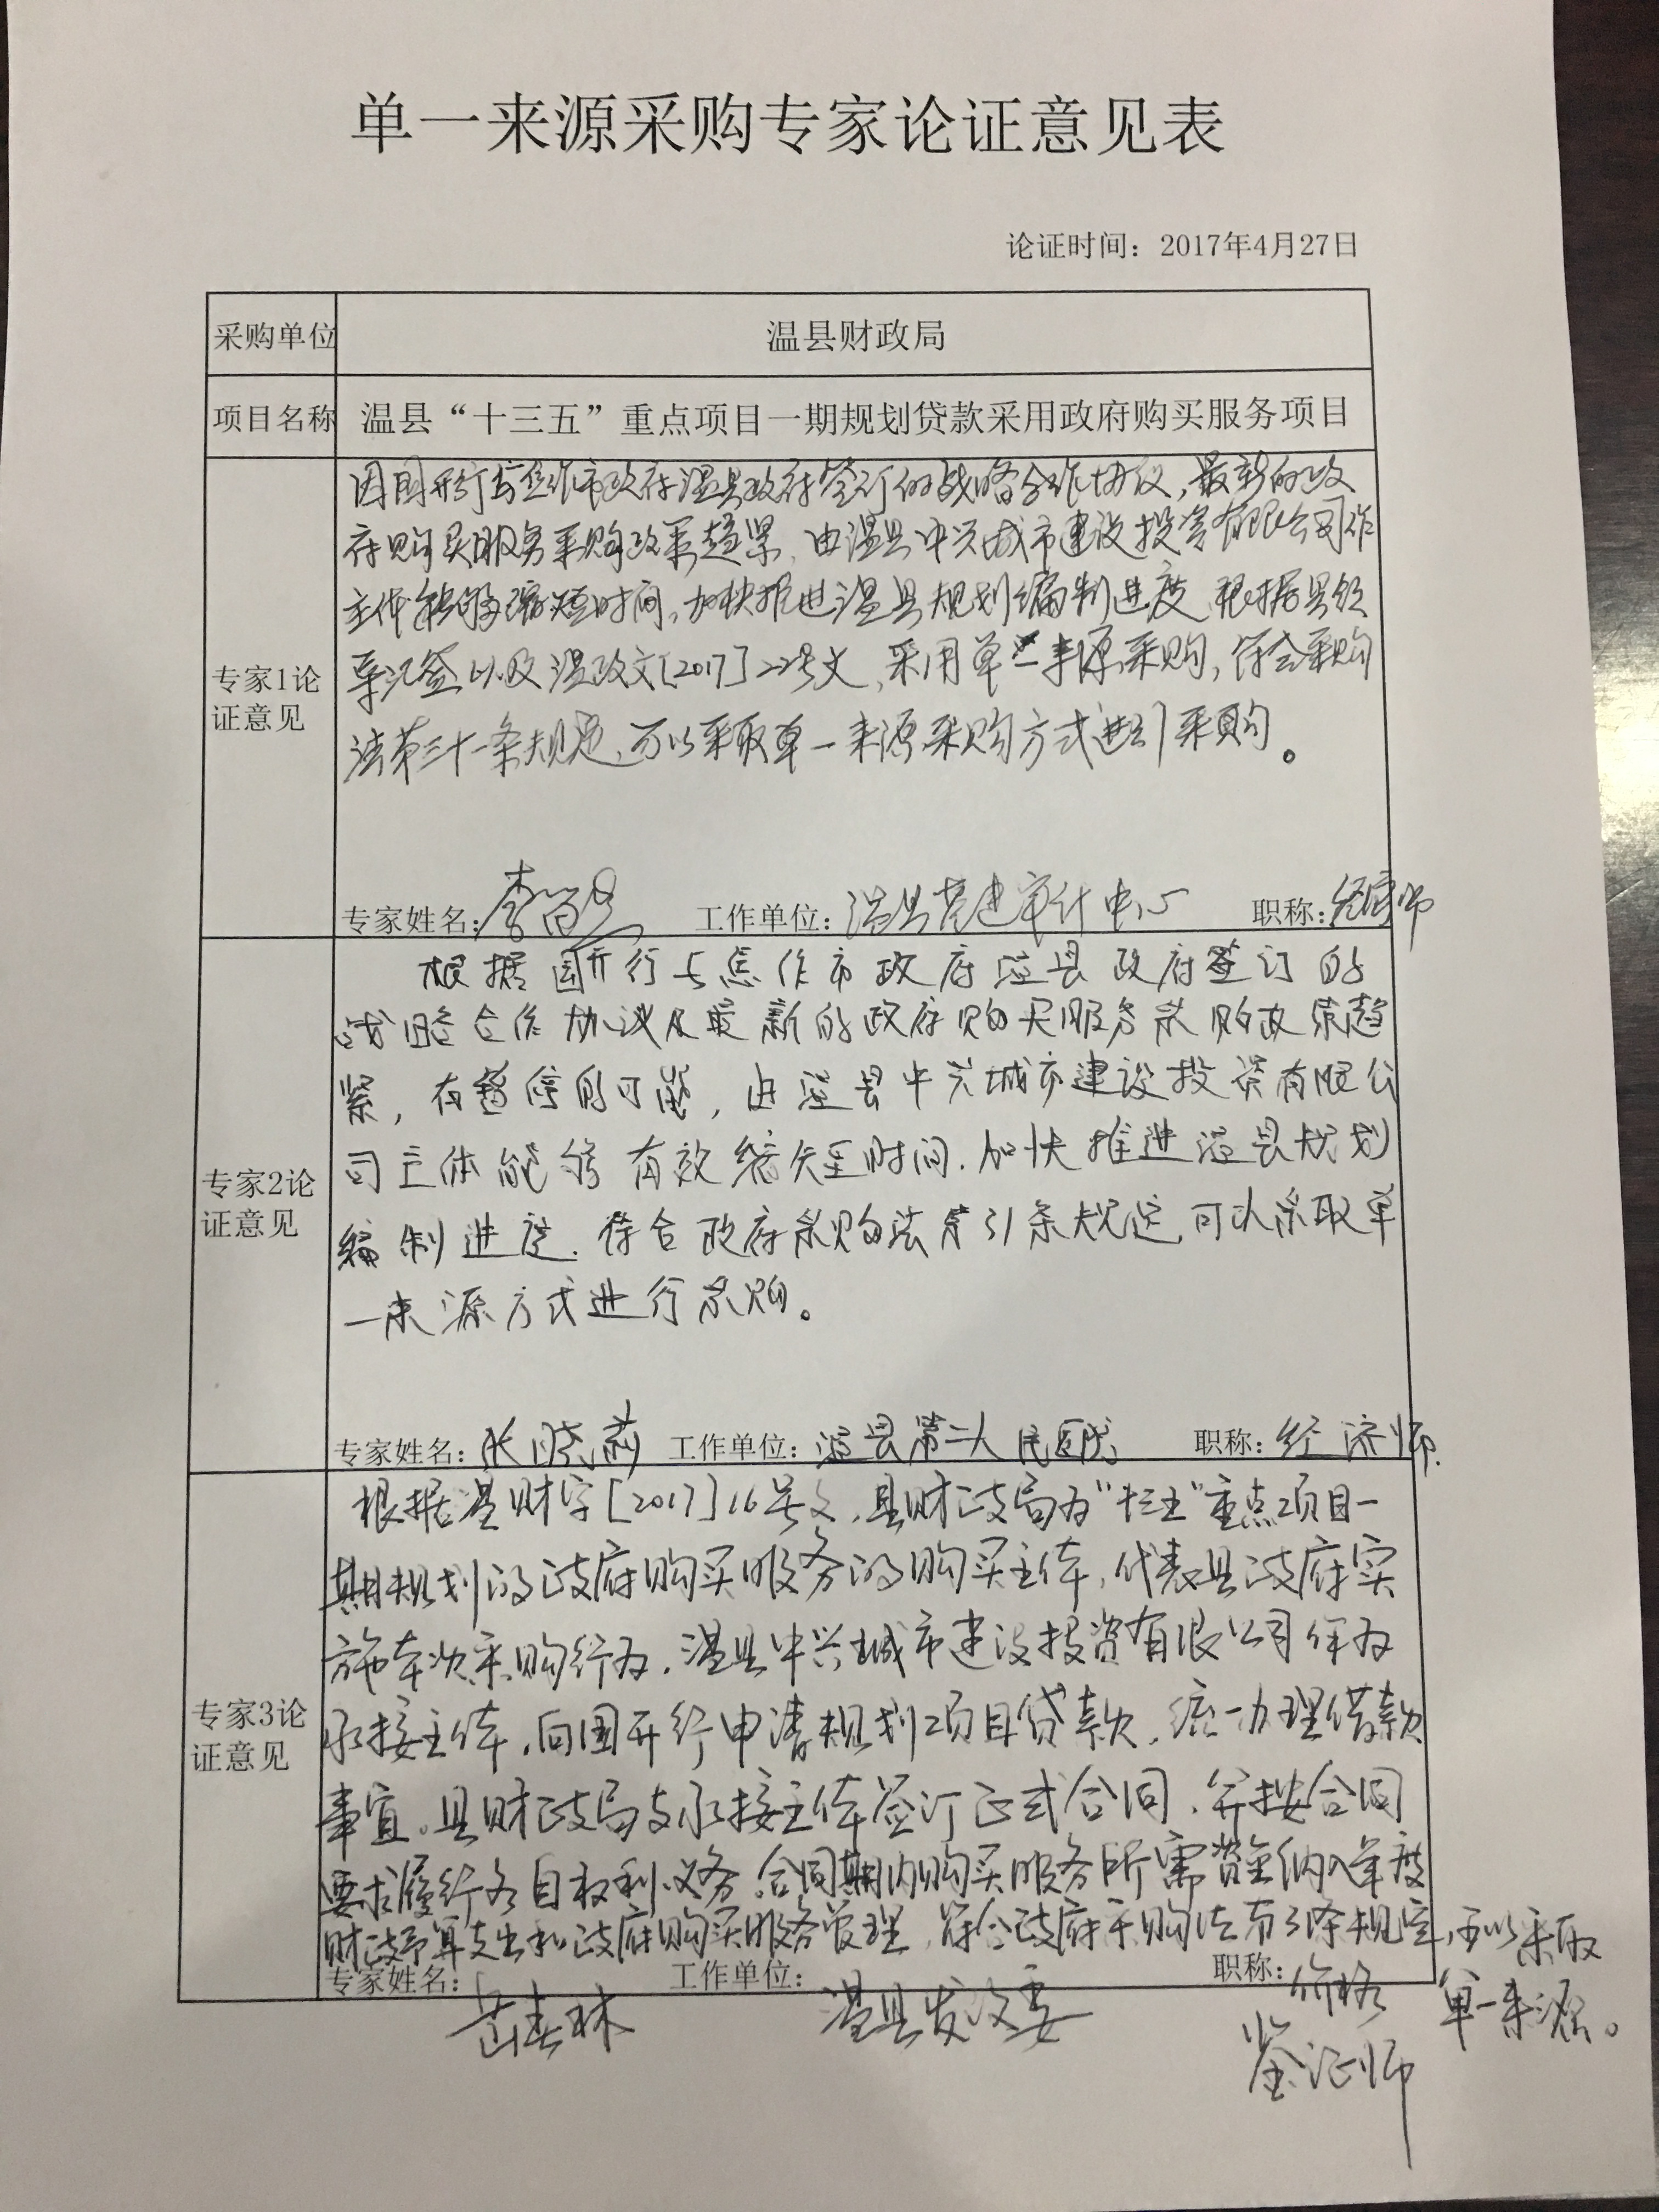 单一来源采购专家论证意见表
论证时间：2017年4月27日
采购单位
温县财政局
项目名称
温县“十三五”重点项目一期规划贷款采用政府购买服务项目
专家1论
证意见
因国开行与焦作市政府温县政府签订的战略合作协议，最新的政
府购买服务采购政策趋紧，由温县中兴城市建设投资有限公司作
主体能够缩短时间，加快推进温县规划编制进度，根据县领
导汇签以及温政文[2017]22号文，采用单一来源采购，符合采购
法第三十一条规定，可以采取单一来源采购方式进行采购。
专家姓名：李
工作单位：温县基建审计中心
职称：经济师
专家2论
证意见
根据国开行与焦作市政府温县政府签订的
战略合作协议及最新的政府购买服务采购政策趋
紧，有暂停的可能，由温县中兴城市建设投资有限公
司主体能够有效缩短时间，加快推进温县规划
编制进度，符合政府采购法第31条规定，可以采取单
一来源方式进行采购。
专家姓名：张晓莉
工作单位：温县第二人民医院
职称：经济师
专家3论
证意见
根据温财字[2017]16号文，县财政局为“十三五”重点项目一
期规划的政府购买服务的购买主体，代表县政府实
施本次采购行为，温县中兴城市建设投资有限公司作为
承接主体，向国开行申请规划项目贷款，统一办理借款
事宜。县财政局与承接主体签订正式合同，并按合同
要求履行各自权利义务。合同期内购买服务所需资金纳入年度
财政预算支出和政府购买服务管理，符合政府采购法第31条规定，可以采取
单一来源。
专家姓名：岳春林
工作单位：温县发改委
职称：价格
鉴证师